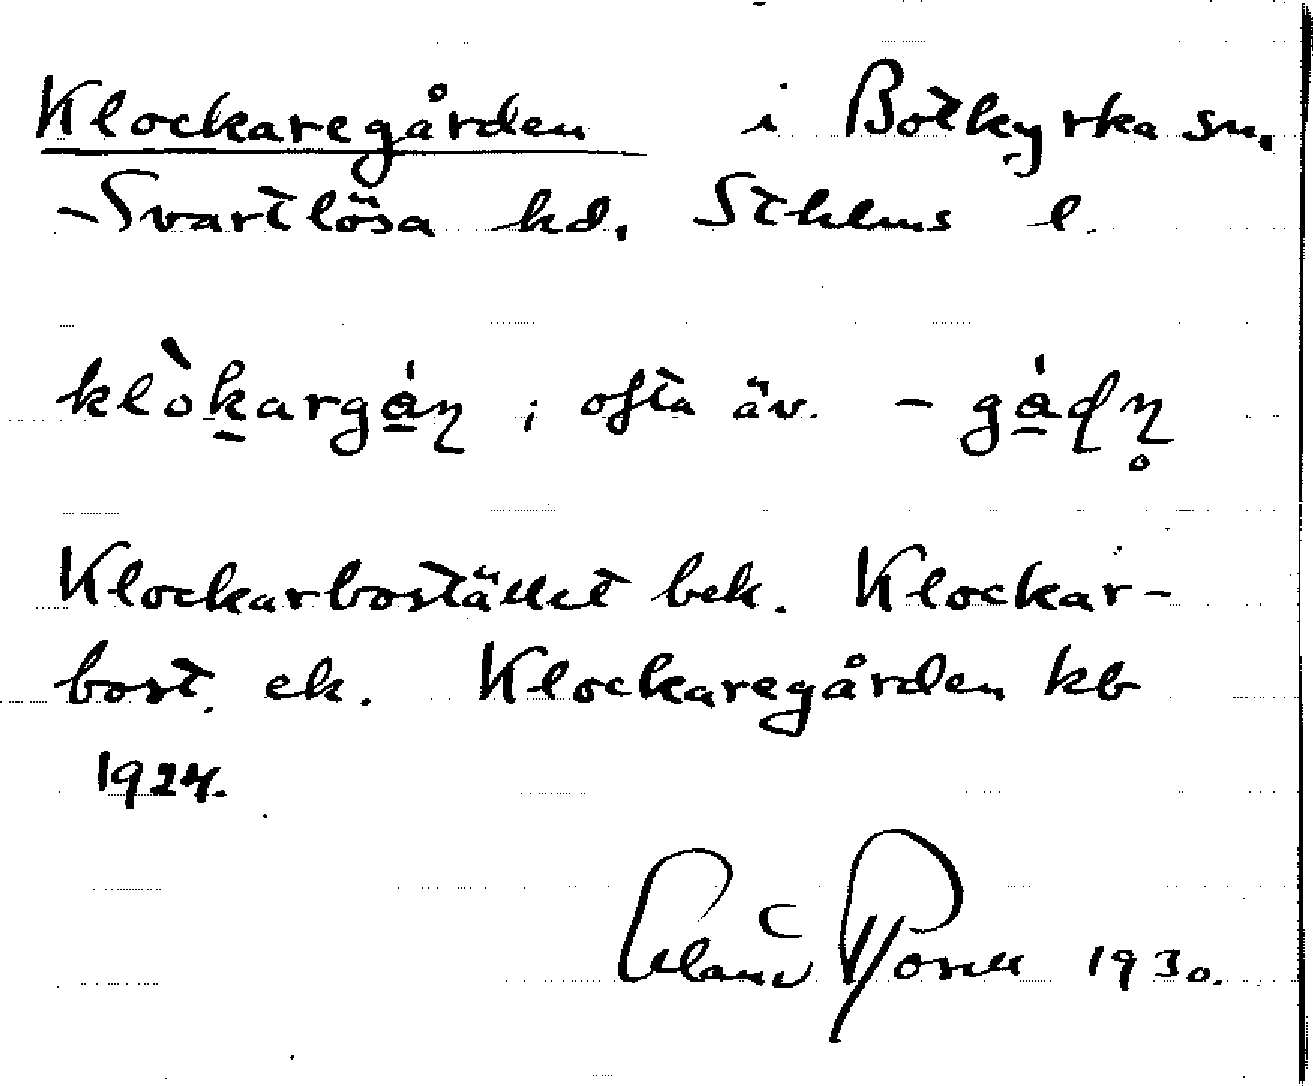 Klockaregården i Botkyrka sn.
Svartlösa hd. Sthlms l.
klòkargá̱ɳ ; ofta äv. - gá̱ɖɳ̥
Klockarbostället bek. Klockar-
bost. ek. Klockaregården kb
1924.
1930.